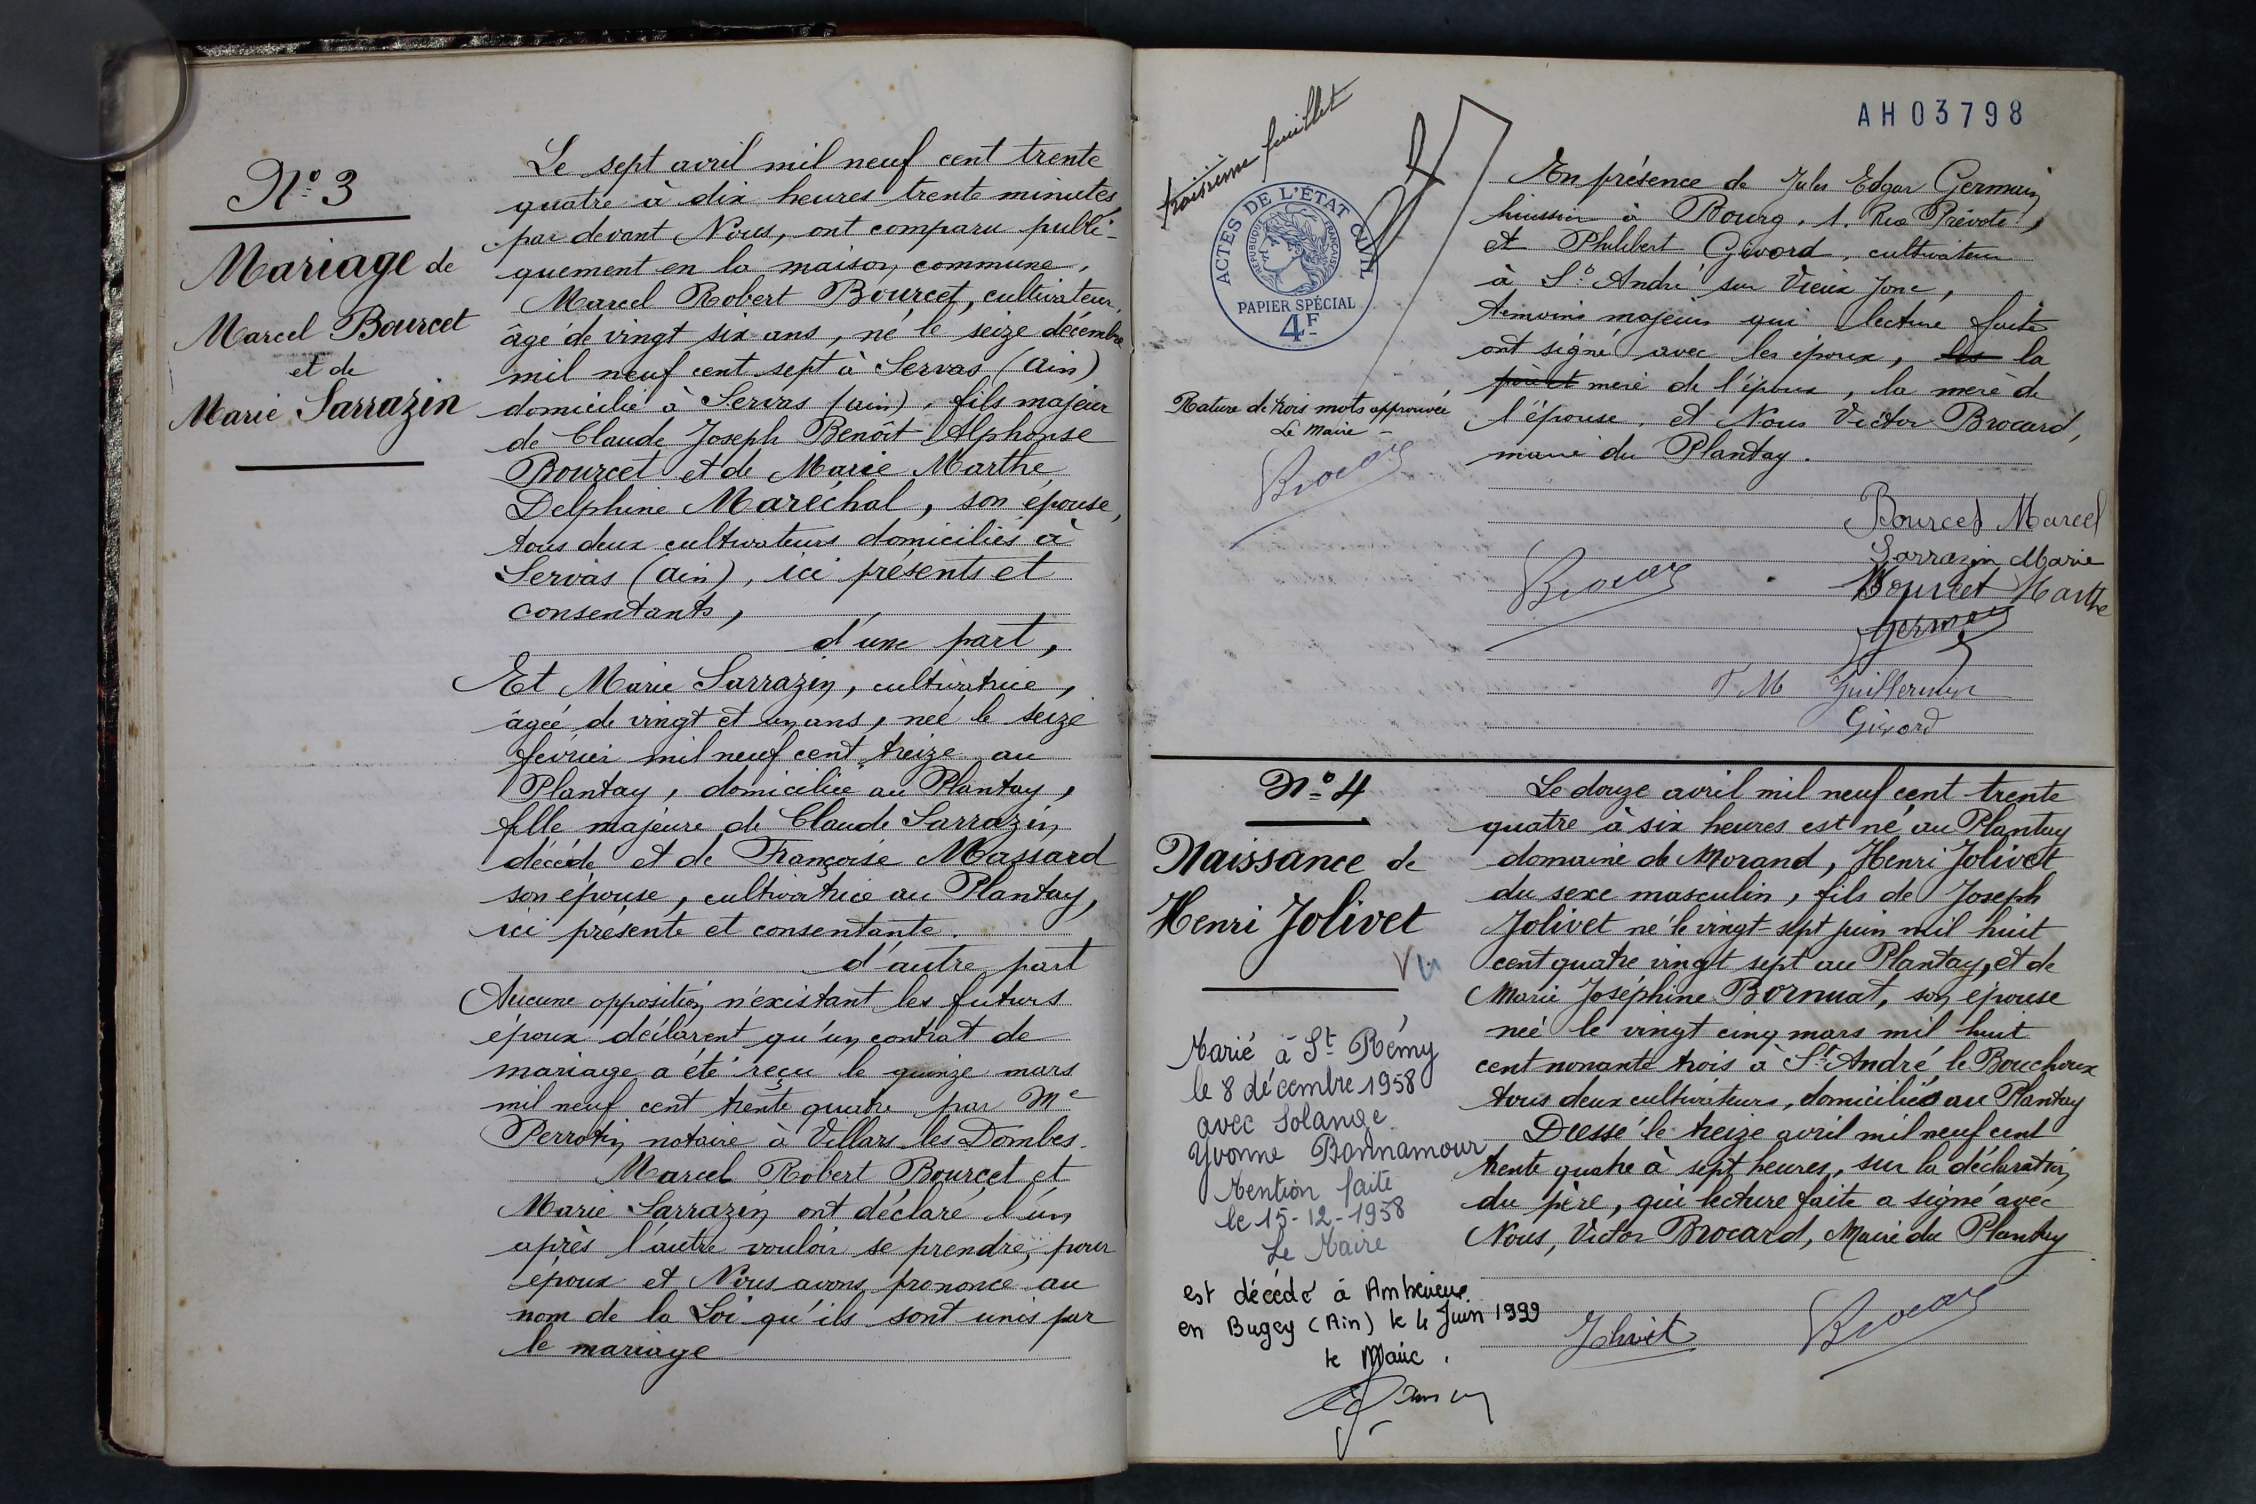 N° 3
Mariage de
Marcel Bourcet
et de
Marie Sarrazin
Le sept avril mil neuf cent trente
quatre à dix heures trente minutes,
par devant Nous, ont comparu publi-
quement en la maison commune,
Marcel Robert Bourcet, cultivateur,
âgé de vingt six ans, né le seize décembre
mil neuf cent sept à Servas (Ain)
domicilié à Servas (Ain), fils majeur
de Claude Joseph Benoît Alphonse
Bourcet et de Marie Marthe
Delphine Maréchal, son épouse,
tous deux cultivateurs domiciliés à
Servas (Ain), ici présents et
consentants,
d'une part,
Et Marie Sarrazin, cultivatrice,
âgée de vingt et un ans, née le seize
février mil neuf cent treize au
Plantay, domiciliée au Plantay,
fille majeure de Claude Sarrazin
décédé et de Françoise Massard
son épouse, cultivatrice au Plantay,
ici présente et consentante.
d'autre part
Aucune opposition n'existant les futurs
époux déclarent qu'un contrat de
mariage a été reçu le quinze mars
mil neuf cent trente quatre par Me
Perrotin notaire à Villars les Dombes.
Marcel Robert Bourcet et
Marie Sarrazin ont déclaré l'un
après l'autre vouloir se prendre pour
époux et Nous avons prononcé au
nom de la Loi qu'ils sont unis par
le mariage
AH03798
troisième feuillet
ACTES DE L'ÉTAT CIVIL
RÉPUBLIQUE FRANÇAISE
PAPIER SPÉCIAL
4F
Rature de trois mots approuvée
Le Maire -
Brocard
En présence de Jules Edgar Germain
huissier à Bourg, 1. Rue Prévoté,
et Philibert Givord, cultivateur
à St André sur Vieux Jonc,
témoins majeurs qui lecture faite
ont signé avec les époux, les la
père et mère de l'époux, la mère de
l'épouse, et Nous Victor Brocard,
maire du Plantay.
Bourcet Marcel
Sarrazin Marie
Brocard
Bourcet Marthe
Germain
Guillermin
Givord
N° 4
Naissance de
Henri Jolivet
Vu
Marié à St Rémy
le 8 décembre 1958
avec Solange
Yvonne Bonnamour
Mention faite
le 15-12-1958
Le Maire
est décédé à Ambérieux
en Bugey (Ain) le 4 Juin 1999
le Maire.
Le douze avril mil neuf cent trente
quatre à six heures est né au Plantay
domaine de Morand, Henri Jolivet
du sexe masculin, fils de Joseph
Jolivet né le vingt-sept juin mil huit
cent quatre vingt sept au Plantay, et de
Marie Joséphine Bornuat, son épouse
née le vingt cinq mars mil huit
cent nonante trois à St André le Bouchoux
tous deux cultivateurs, domiciliés au Plantay
Dressé le treize avril mil neuf cent
trente quatre à sept heures, sur la déclaration
du père, qui lecture faite a signé avec
Nous, Victor Brocard, Maire du Plantay
Jolivet
Brocard